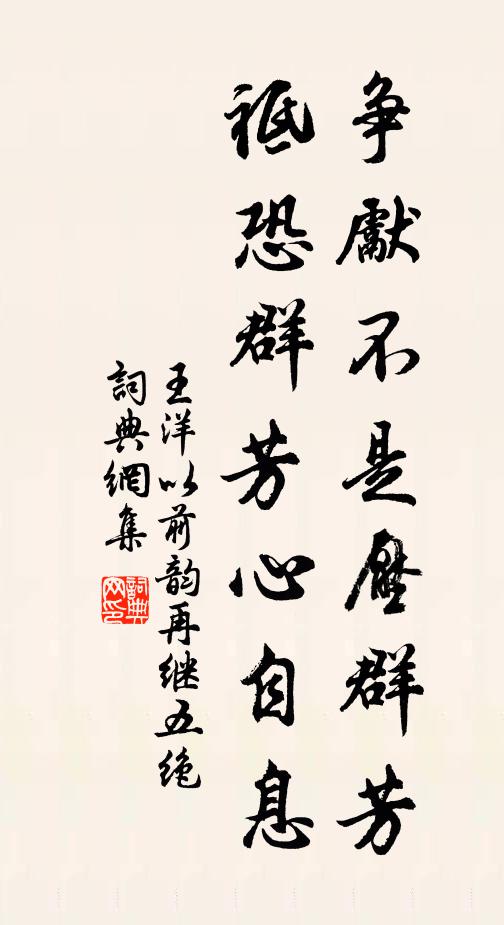 争獻不是壓群芳
祗恐群芳心自息
王洋以前韵再继五绝
詞典網集
詞典網印